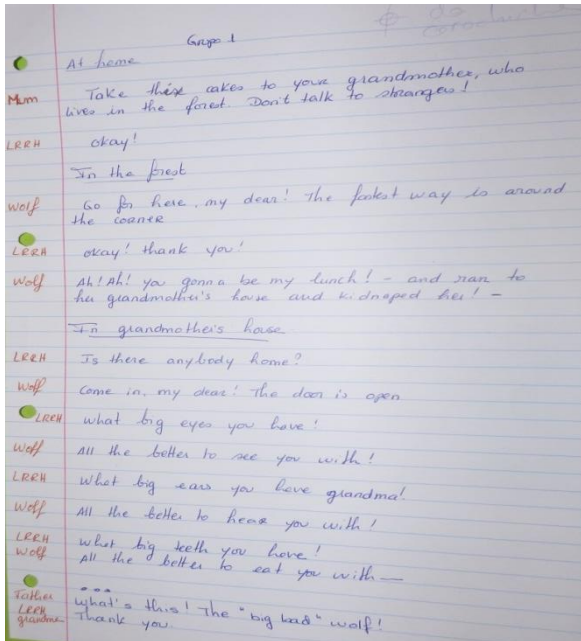 Grupo 1
At home
Mum Take these cakes to your grandmother, who
lives in the forest. Don't talk to strangers!
LRRH okay!
In the forest
Wolf Go for here, my dear! The fastest way is around
the corner
LRRH okay! thank you!
Wolf Ah! Ah! you gonna be my lunch! - and ran to
her grandmother's house and kidnaped her! -
In grandmother's house
LRRH Is there anybody home?
Wolf Come in, my dear! The door is open
LRRH What big eyes you have!
Wolf All the better to see you with!
LRRH What big ears you have grandma!
Wolf All the better to hear you with!
LRRH What big teeth you have!
Wolf All the better to eat you with —
...
Father What's this! The "big bad" wolf!
LRRH Thank you.
grandma